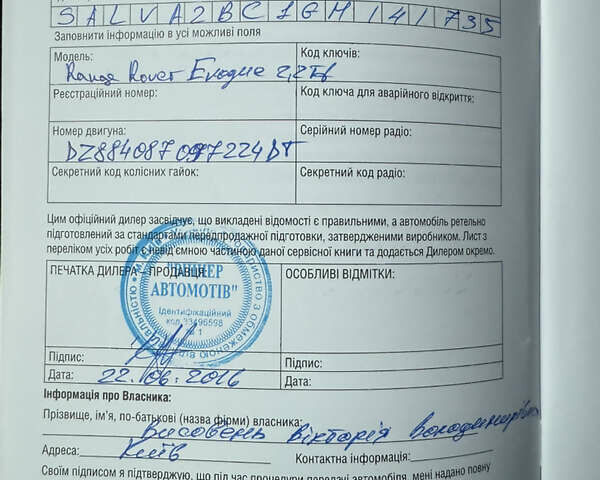 SALVA2BC1GH141735
Заповнити інформацію в усі можливі поля
Модель: Range Rover Evoque 2,2Td
Код ключів:
Реєстраційний номер:
Код ключа для аварійного відкриття:
Номер двигуна: DZ884087097224DT
Серійний номер радіо:
Секретний код колісних гайок:
Секретний код радіо:
Цим офіційний дилер засвідчує, що викладені відомості є правильними, а автомобіль ретельно
підготовлений за стандартами передпродажної підготовки, затвердженими виробником. Лист з
переліком усіх робіт є невід'ємною частиною даної сервісної книги та додається Дилером окремо.
ПЕЧАТКА ДИЛЕРА – ПРОДАВЦЯ
ОСОБЛИВІ ВІДМІТКИ:
АВТОМОТІВ"
Ідентифікаційний
код 33496598
№ 1
Підпис:
Підпис:
Дата: 22.06.2016
Дата:
Інформація про Власника:
Прізвище, ім'я, по-батькові (назва фірми) власника:
Вікторія
Адреса: Київ
Контактна інформація:
Своїм підписом я підтверджую, що під час процедури передачі автомобіля, мені надано повну